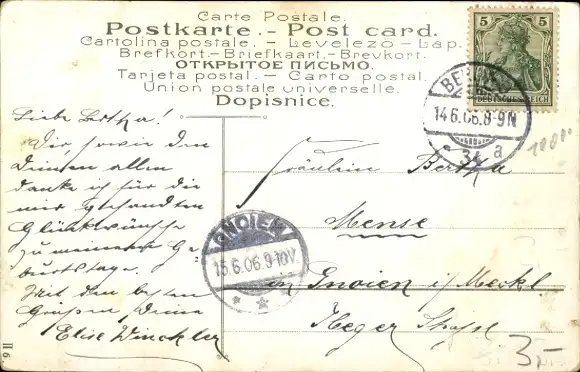 Carte Postale.
Postkarte. - Post card.
Cartolina postale. - Levelező-Lap.
Brefkort.- Briefkaart.- Brevkort.
ОТКРЫТОЕ ПИСЬМО.
Tarjeta postal. - Carto postal.
Union postale universelle.
Dopisnice.
5 5
DEUTSCHES REICH
BERLIN
14.6.06.8-9N
34 a
Liebe Bertha!
Dir, sowie den
Deinen allen
danke ich für die
mir gesandten
Glückwünsche
zu meinem Ge-
burtstage.
Mit den besten
Grüßen, Deine
Elise Winckler
Fräulein Bertha
Mense
in Gnoien i/Meckl
GNOIEN
15.6.06.9-10V.
3,-
II 6